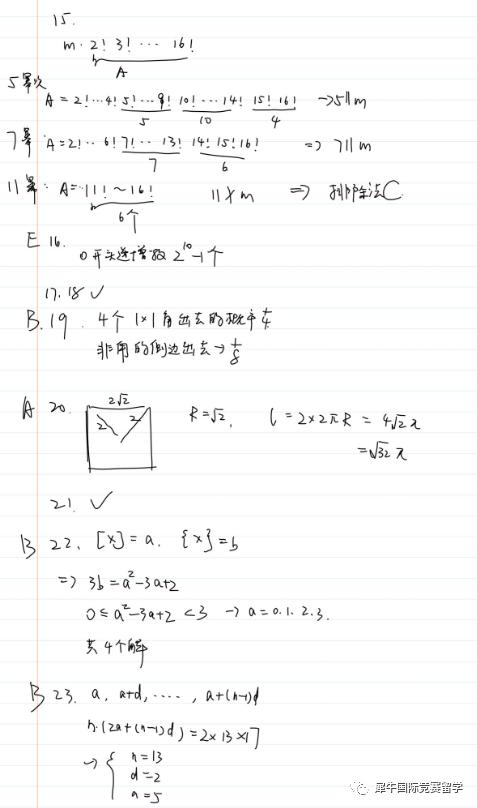 15.
m · 2! 3! ··· 16!
A
5幂次 A = 2! ··· 4! 5! ··· 9! 10! ··· 14! 15! 16! → 5∥m
5 10 4
7幂: A = 2! ·· 6! 7! ·· 13! 14! 15! 16! ⇒ 7∥m
7 6
11幂: A = 11! ~ 16! 11∤m ⇒ 排除法C
6个
E 16. 0开头递增数 2^10-1个
17. 18 ✓
B. 19. 4个 1×1 角出去的概率 1/4
非角的侧边出去 → 1/8
A 20. 2√2 R = √2, l = 2×2πR = 4√2π
2 2
= √32 π
21. ✓
B 22. [x] = a. {x} = b
⇒ 3b = a²-3a+2
0 ≤ a²-3a+2 < 3 → a = 0. 1. 2. 3.
共4个解
B 23. a, a+d, ····, a+(n-1)d
n·(2a+(n-1)d) = 2×13×17
→ { n = 13
d = 2
a = 5
犀牛国际竞赛留学